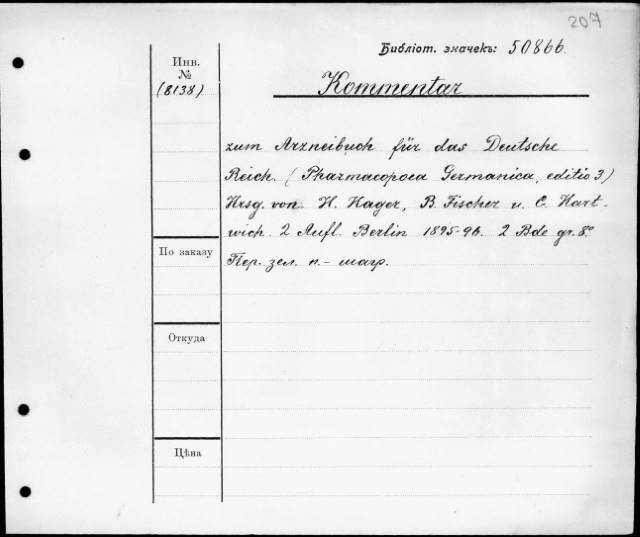 207
Библіот. значекъ: 50866.
Инв.
№
(8138)
Kommentar
zum Arzneibuch für das Deutsche
Reich. (Pharmacopoea Germanica, editio 3)
Hrsg. von H. Hager, B. Fischer u. C. Hart-
wich. 2 Aufl. Berlin 1895-96. 2 Bde gr. 8.º
По заказу
Пер. зел. п.- шагр.
Откуда
Цѣна